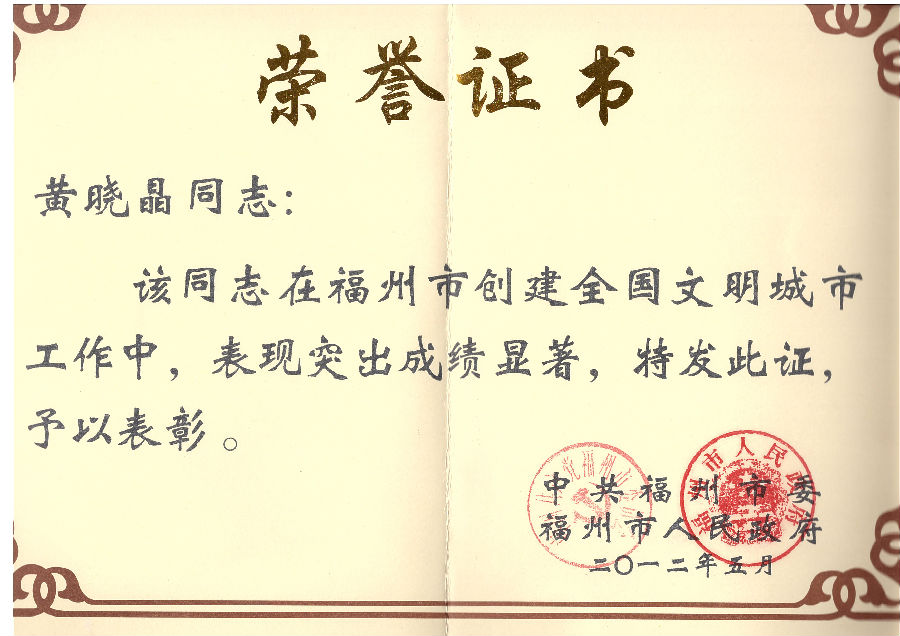 荣誉证书
黄晓晶同志：
该同志在福州市创建全国文明城市
工作中，表现突出成绩显著，特发此证，
予以表彰。
中共福州市委
福州市人民政府
二〇一二年五月